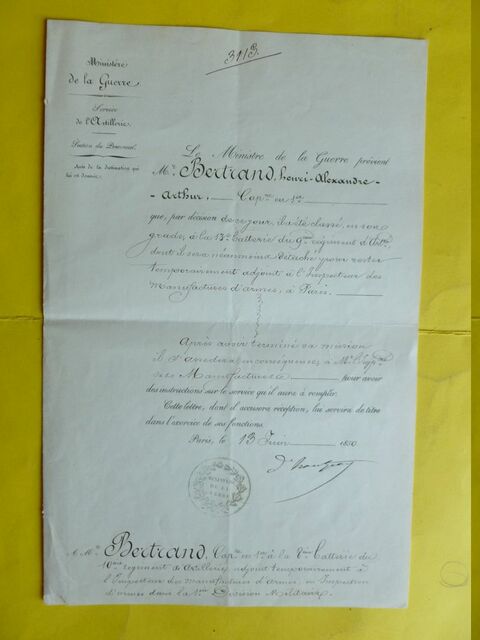 3113.
Ministère
de la Guerre
Service
de l'Artillerie.
Section du Personnel.
Avis de la destination qui
lui est donnée.
Le Ministre de la Guerre prévient
Mr. Bertrand, Henri-Alexandre-
-Arthur, Capne en 1er
que, par décision de ce jour, il a été classé, en son
grade, à la 13e Batterie du 9me régiment d'Artie,
dont il sera néanmoins détaché pour rester
temporairement adjoint à l'Inspecteur des
manufactures d'armes, à Paris.
Après avoir terminé sa mission
il s'adressera, en conséquence, à Mr. l'
des Manufactures pour avoir
des instructions sur le service qu'il aura à remplir.
Cette lettre, dont il accusera réception, lui servira de titre
dans l'exercice de ses fonctions.
Paris, le 13 Juin 1850
d'Hautpoul
MINISTÈRE
DE LA
GUERRE
A Mr. Bertrand, Capne en 1er à la 8me Batterie du
10me régiment d'Artillerie, adjoint temporairement à
l'Inspecteur des manufactures d'armes, en Inspection
d'armes dans la 1ère Division Militaire.